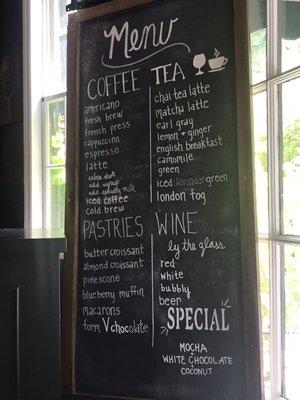 Menu
COFFEE
americano
fresh brew
french press
cappuccino
espresso
latte
extra shot
add syrup
add specialty milk
iced coffee
cold brew
TEA
chai tea latte
matcha latte
earl gray
lemon + ginger
english breakfast
camomile
green
iced lavender green
london fog
PASTRIES
butter croissant
almond croissant
pinescone
blueberry muffin
macarons
form V chocolate
WINE
by the glass
red
white
bubbly
beer
SPECIAL
MOCHA
WHITE CHOCOLATE
COCONUT